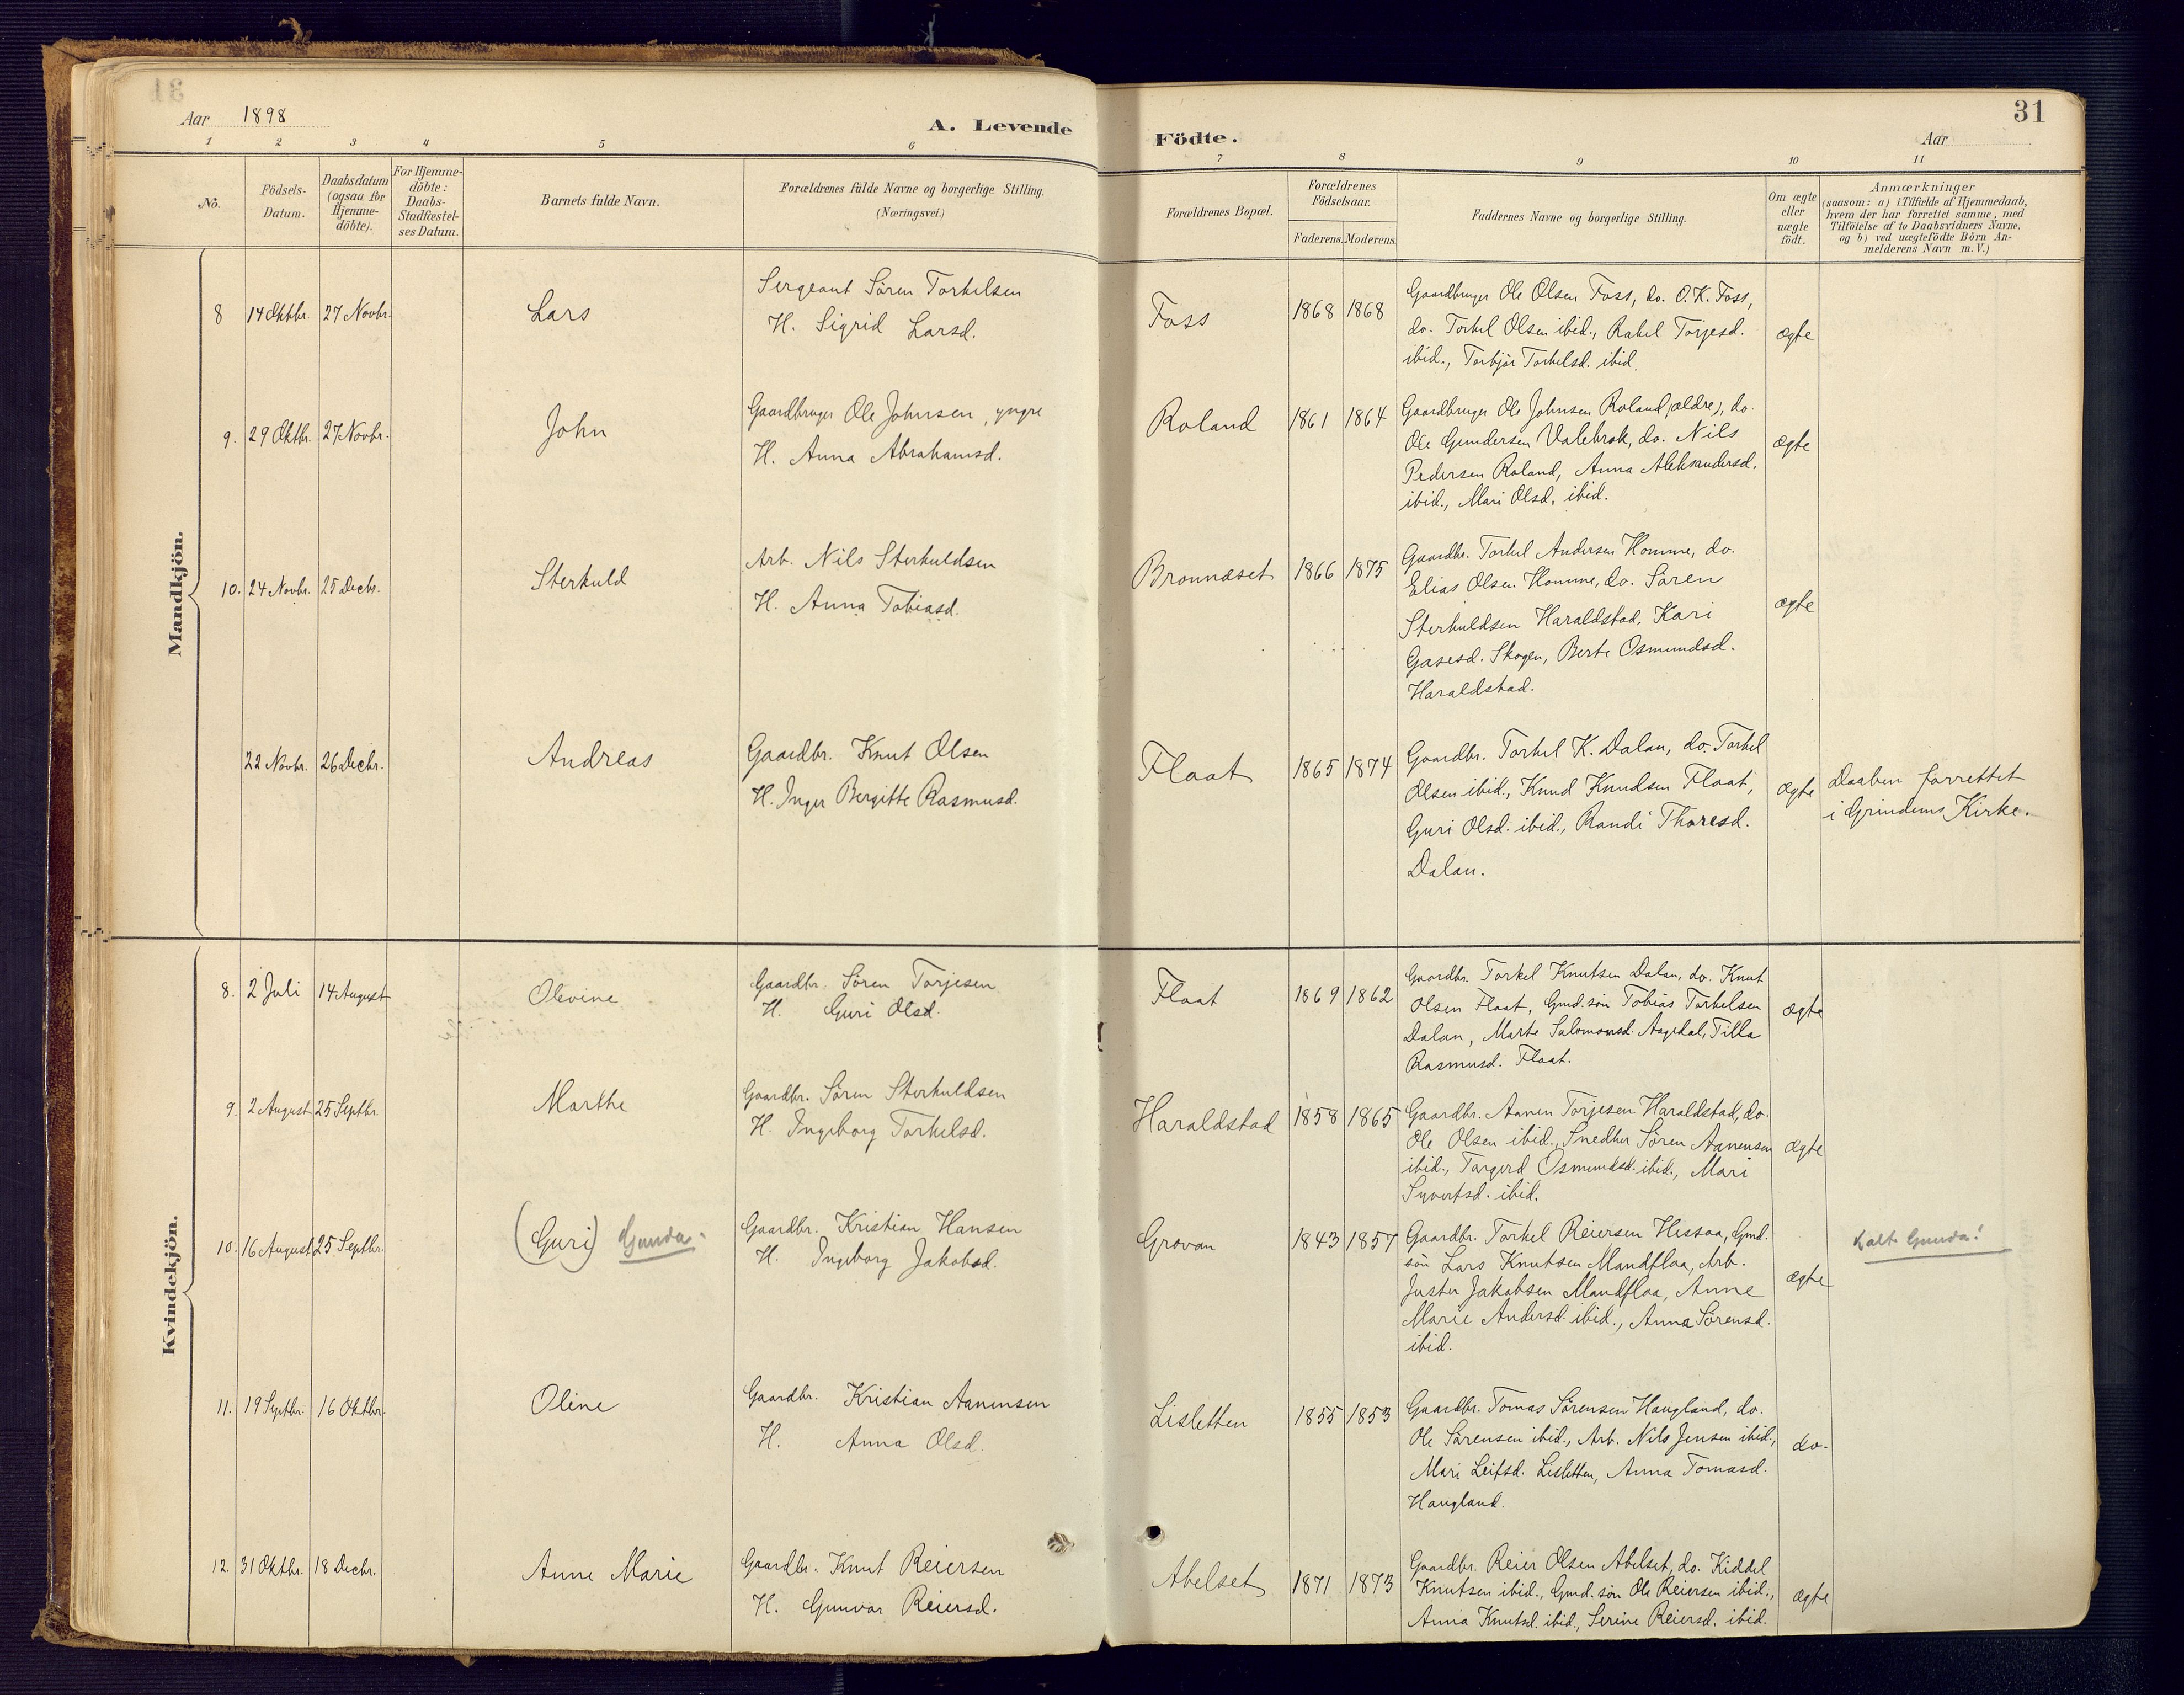 31
Aar 1898
A. Levende Födte.
Aar
1 2 3 4 5 6 7 8 9 10 11
No.
Födsels-Datum.
Daabsdatum (ogsaa for Hjemme-döbte).
For Hjemme-döbte: Daabs-Stadfæstel-ses Datum.
Barnets fulde Navn.
Forældrenes fulde Navne og borgerlige Stilling.
(Næringsvei.)
Forældrenes Bopæl.
Forældrenes Födselsaar.
Faderens. Moderens.
Faddernes Navne og borgerlige Stilling.
Om ægte eller uægte födt.
Anmærkninger
(saasom: a) i Tilfælde af Hjemmedaab,
hvem der har forrettet samme, med
Tilföielse af to Daabsvidners Navne,
og b) ved uægtefödte Börn An-
melderens Navn m. V.)
Mandkjön.
8 14 Oktbr. 27 Novbr. Lars
Sergeant Sören Torkelsen
H. Sigrid Larsd.
Foss 1868 1868
Gaardbruger Ole Olsen Foss, do. O. K. Foss,
do. Torkel Olsen ibid., Rakel Torjesd.
ibid., Torbjør Torkelsd. ibid.
ægte
9. 29 Oktbr. 27 Novbr. John
Gaardbruger Ole Johnsen, yngre
H. Anna Abrahamsd.
Roland 1861 1864
Gaardbruger Ole Johnsen Roland (ældre), do.
Ole Gundersen Valebrok, do. Nils
Pedersen Roland, Anna Aleksandersd.
ibid., Mari Olsd. ibid.
ægte
10. 24 Novbr. 25 Decbr. Sterkuld
Arb. Nils Sterkuldsen
H. Anna Tobiasd.
Bronnæset 1866 1875
Gaardbr. Torkel Andersen Homme, do.
Elias Olsen Homme, do. Sören
Sterkuldsen Haraldstad, Kari
Gasesd. Skogen, Berte Osmundsd.
Haraldstad.
ægte
22 Novbr. 26 Decbr. Andreas
Gaardbr. Knut Olsen
H. Inger Bergitte Rasmusd.
Flaat 1865 1874
Gaardbr. Torkel K. Dalan, do. Torkel
Olsen ibid., Knud Knudsen Flaat,
Guri Olsd. ibid., Randi Thoresd.
Dalan.
ægte
Daaben forrettet
i Grindems Kirke.
Kvindekjön.
8. 2 Juli 14 August Olevine
Gaardbr. Sören Torjesen
H. Guri Olsd.
Flaat 1869 1862
Gaardbr. Torkel Knutsen Dalan, do. Knut
Olsen Flaat, Gmd. søn Tobias Torkelsen
Dalan, Marte Salomonsd. Aagedal, Tilla
Rasmusd. Flaat.
ægte
9. 2 August 25 Septbr. Marthe
Gaardbr. Sören Sterkuldsen
H. Ingeborg Torkelsd.
Haraldstad 1858 1865
Gaardbr. Aanen Torjesen Haraldstad, do.
Ole Olsen ibid., Snedker Sören Aanensen
ibid., Targerd Osmundsd. ibid., Mari
Syvertsd. ibid.
ægte
10. 16 August 25 Septbr. (Guri) Gunda.
Gaardbr. Kristian Hansen
H. Ingeborg Jakobsd.
Grovan 1843 1857
Gaardbr. Torkel Reiersen Hessaa, Gmd.
søn Lars Knutsen Mandflaa, Arb.
Juster Jakobsen Mandflaa, Anne
Marie Andersd. ibid., Anna Sörensd.
ibid.
ægte
Kalt Gunda!
11. 19 Septbr. 16 Oktbr. Oline
Gaardbr. Kristian Aanensen
H. Anna Olsd.
Lisletten 1855 1853
Gaardbr. Tomas Sörensen Haugland, do.
Ole Sörensen ibid., Arb. Nils Jensen ibid.,
Mari Leifsd. Lisletten, Anna Tomasd.
Haugland.
do.
12. 31 Oktbr. 18 Decbr. Anne Marie
Gaardbr. Knut Reiersen
H. Gunvor Reiersd.
Abelset 1871 1873
Gaardbr. Reier Olsen Abelset, do. Kiddel
Knutsen ibid., Gmd. søn Ole Reiersen ibid.,
Anna Knutsd. ibid., Serine Reiersd. ibid.
ægte